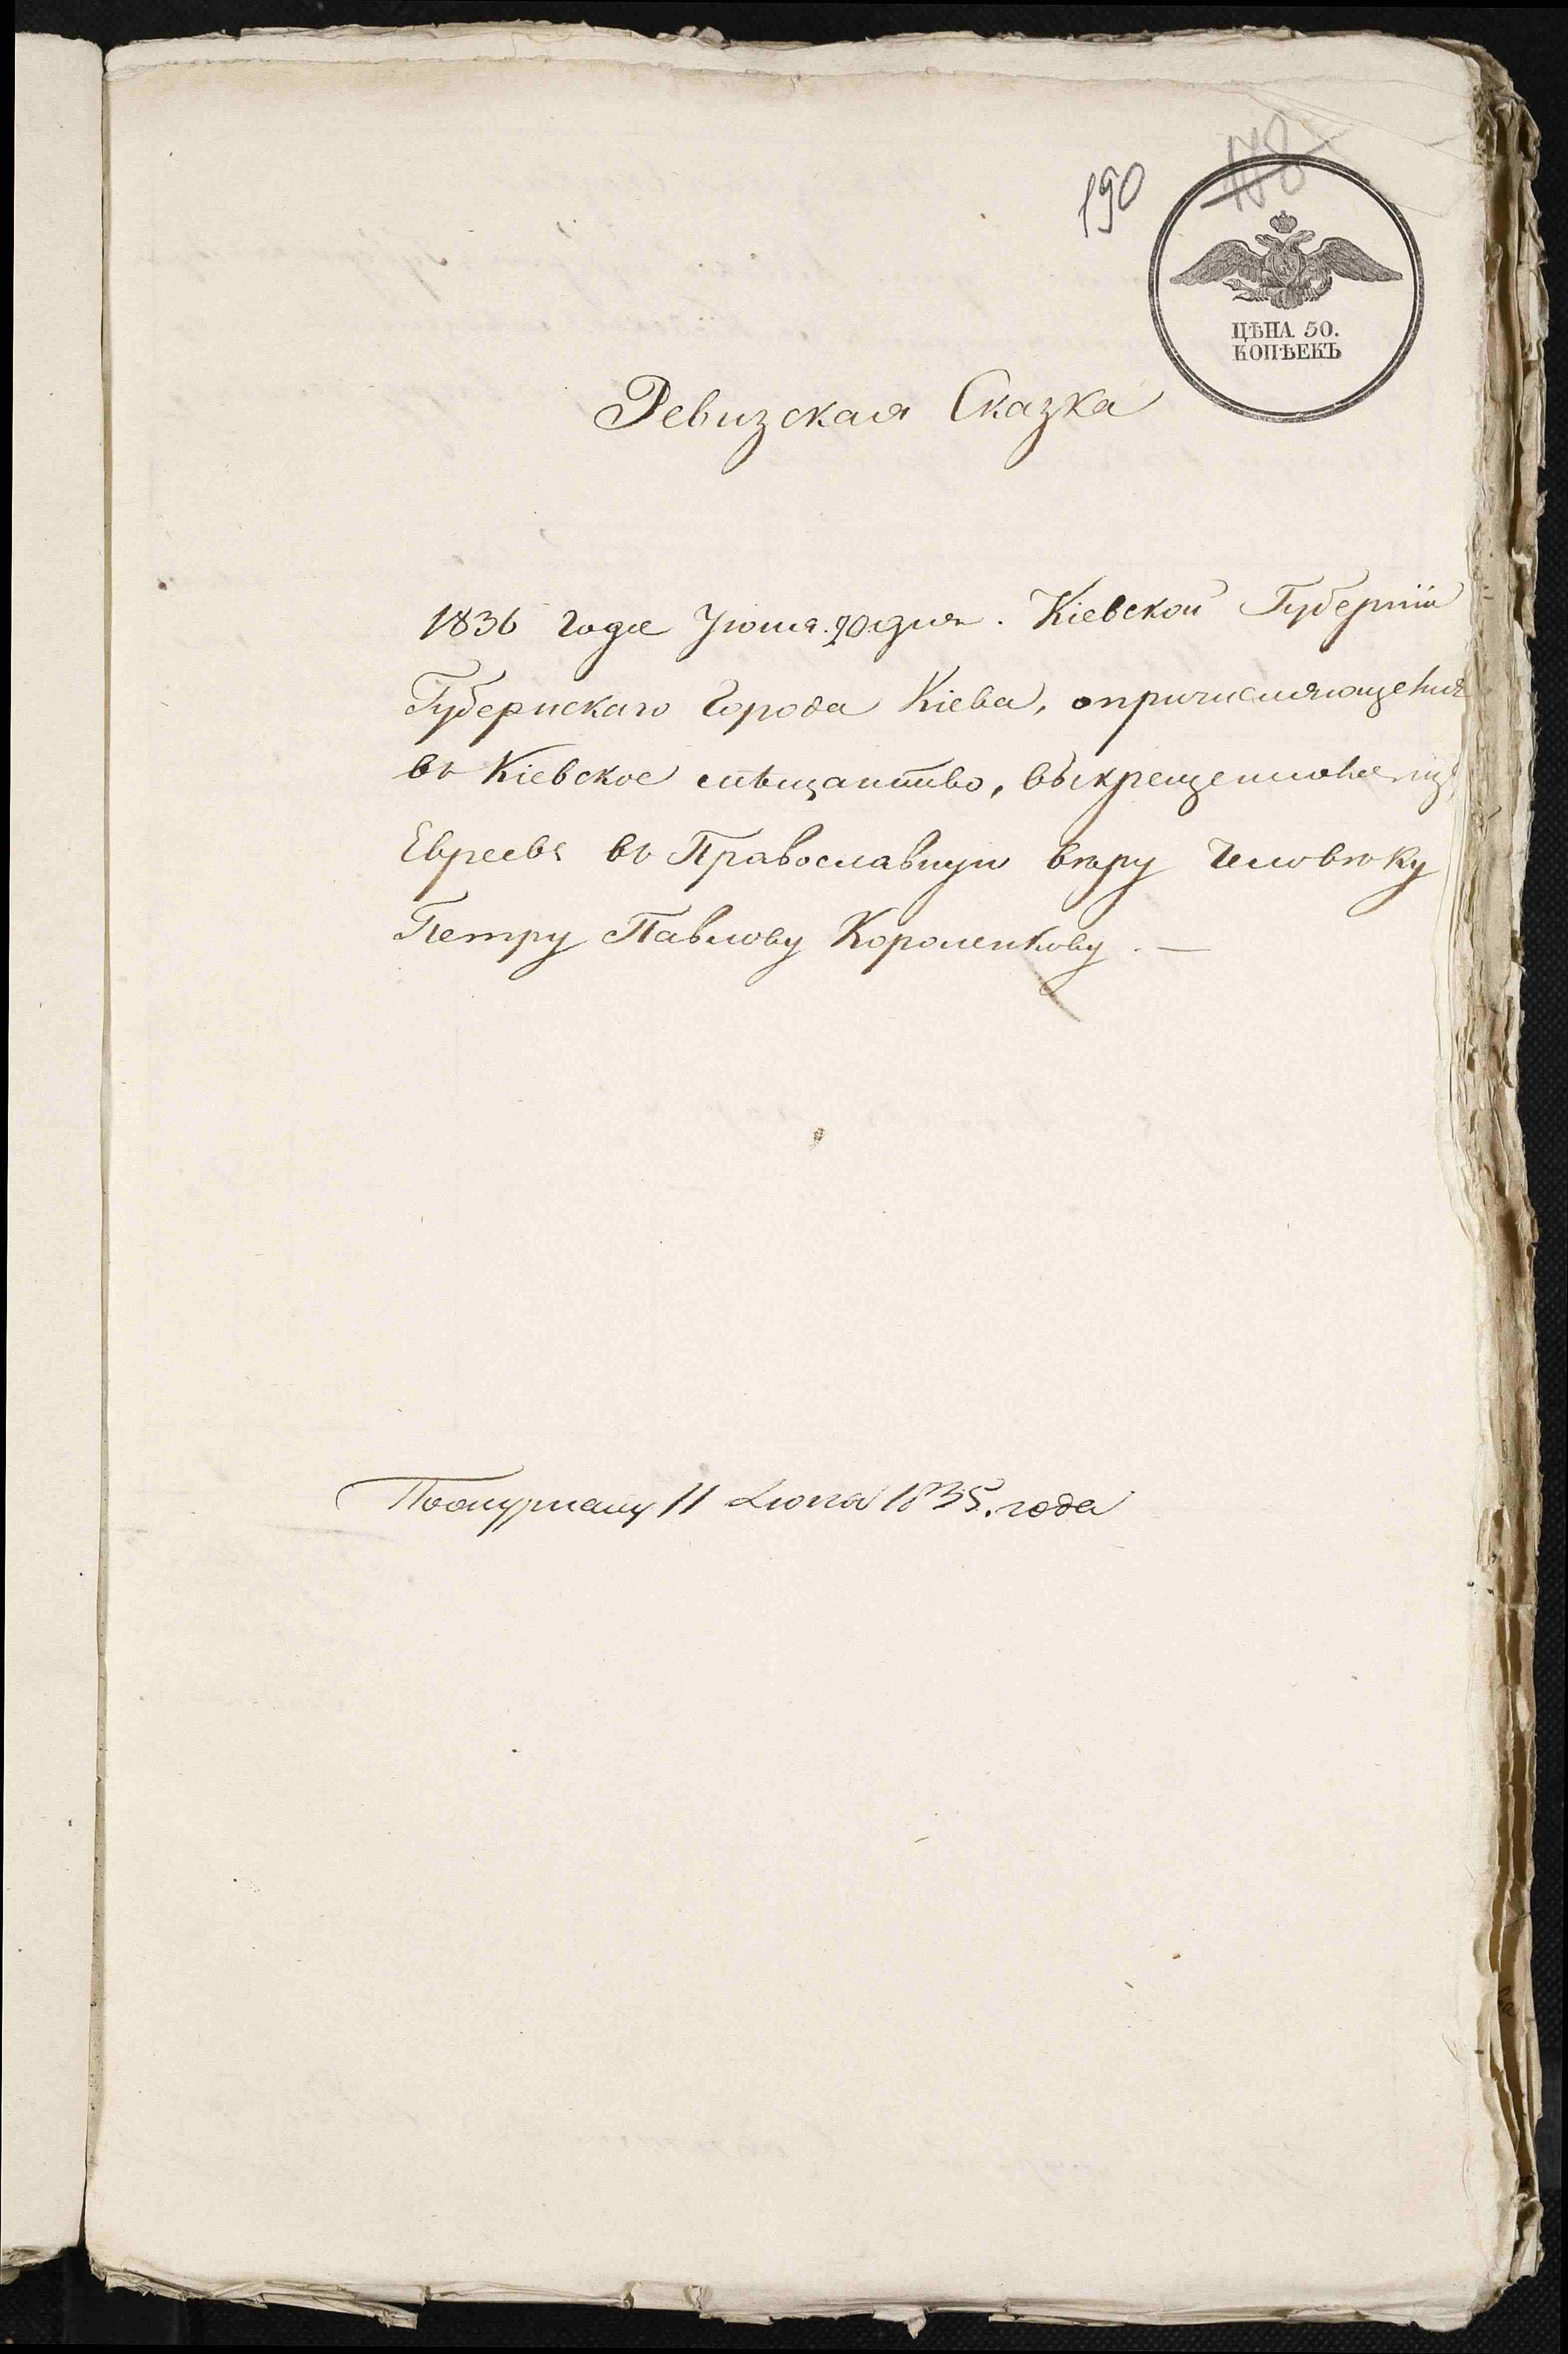 190
118
ЦѢНА 50.
КОПѢЕКЪ
Ревизская Сказка
1836 года Июня 20 дня. Кіевской Губерніи
Губернскаго Города Кіева, опричисляющемся
въ Кіевское мѣщанство, выкрещенномъ изъ
Евреевъ въ Православную вѣру человѣку
Петру Павлову Короленкову. —
11 Июня 1835. года